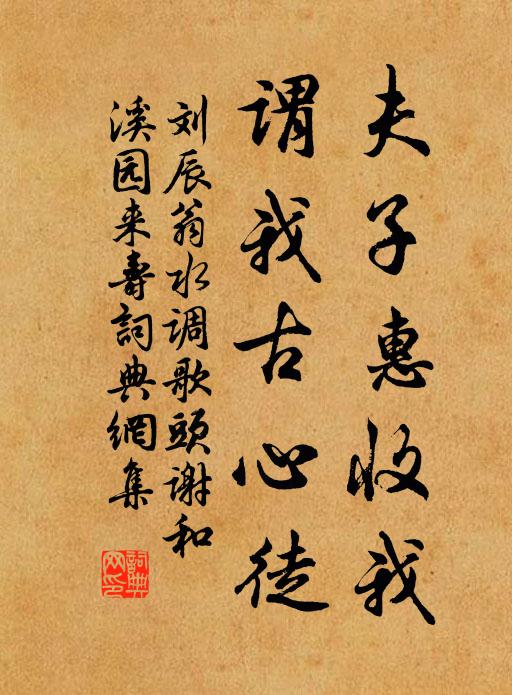 夫子惠收我
谓我古心徒
刘辰翁水调歌头谢和
溪园来寿詞典網集
詞典网印